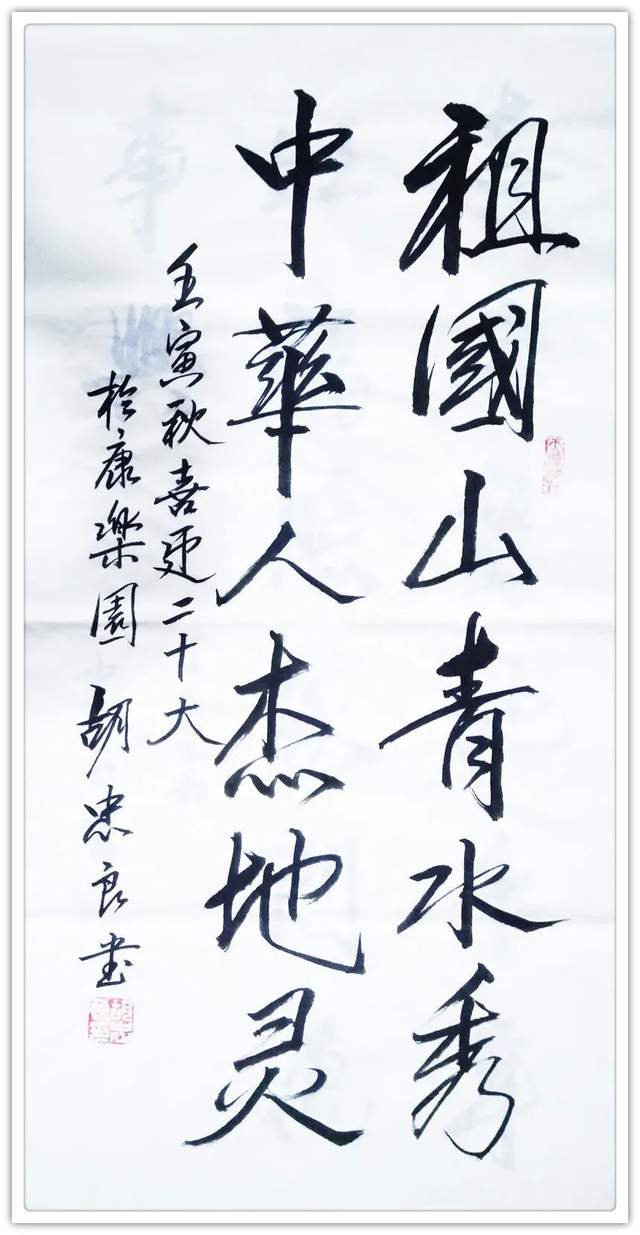 祖國山青水秀
中華人杰地灵
壬寅秋喜迎二十大
於康樂園胡忠良書